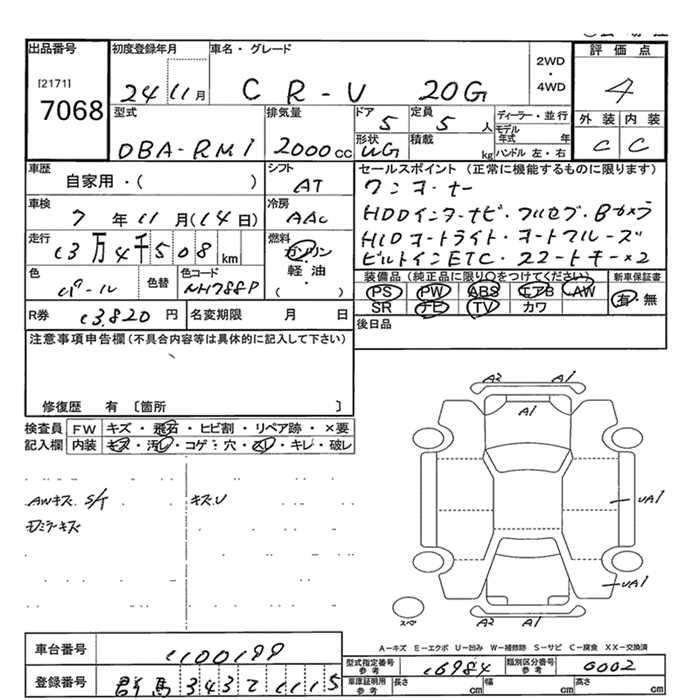 出品番号 初度登録年月 車名・グレード 2WD・4WD 評価点
[2171]
7068 24 11月 CR-V 20G 4
型式 排気量 ドア 定員 ディーラー・並行 外装 内装
DBA-RM1 2000cc 5 5人 モデル年式 年 C C
形状 積載 ハンドル 左・右
UG kg
車歴 シフト セールスポイント (正常に機能するものに限ります)
自家用・( ) AT ワンオーナー
車検 冷房 HDDインターナビ・フルセグ・Bカメラ
7年11月(14日) AAC HIDオートライト・オートクルーズ
走行 燃料 ビルトインETC・スマートキー×2
13万4千508km ガソリン
軽・油
( ・ )
色 色替 色コード 装備品 (純正品に限り○をつけてください) 新車保証書
パール NH788P PS PW ABS エアB AW 有・無
R券 13,820円 名変期限 月 日 SR ナビ TV カワ
注意事項申告欄(不具合内容等は具体的に記入して下さい) 後日品
修復歴 有 〔箇所 〕
検査員 FW キズ・飛石・ヒビ割・リペア跡・×要
記入欄 内装 キズ・汚レ・コゲ・穴・スレ・キレ・破レ
AWキズ S/T キズU
A2 A1
UA1
UA1
スペア
A2 A1
A-キズ E-エクボ U-凹み W-補修跡 S-サビ C-腐食 XX-交換済
車台番号 1100199
型式指定番号 参考 16984 類別区分番号 参考 0002
登録番号 群馬 343 て 1115
車庫証明用 参考 長さ cm 幅 cm 高さ cm